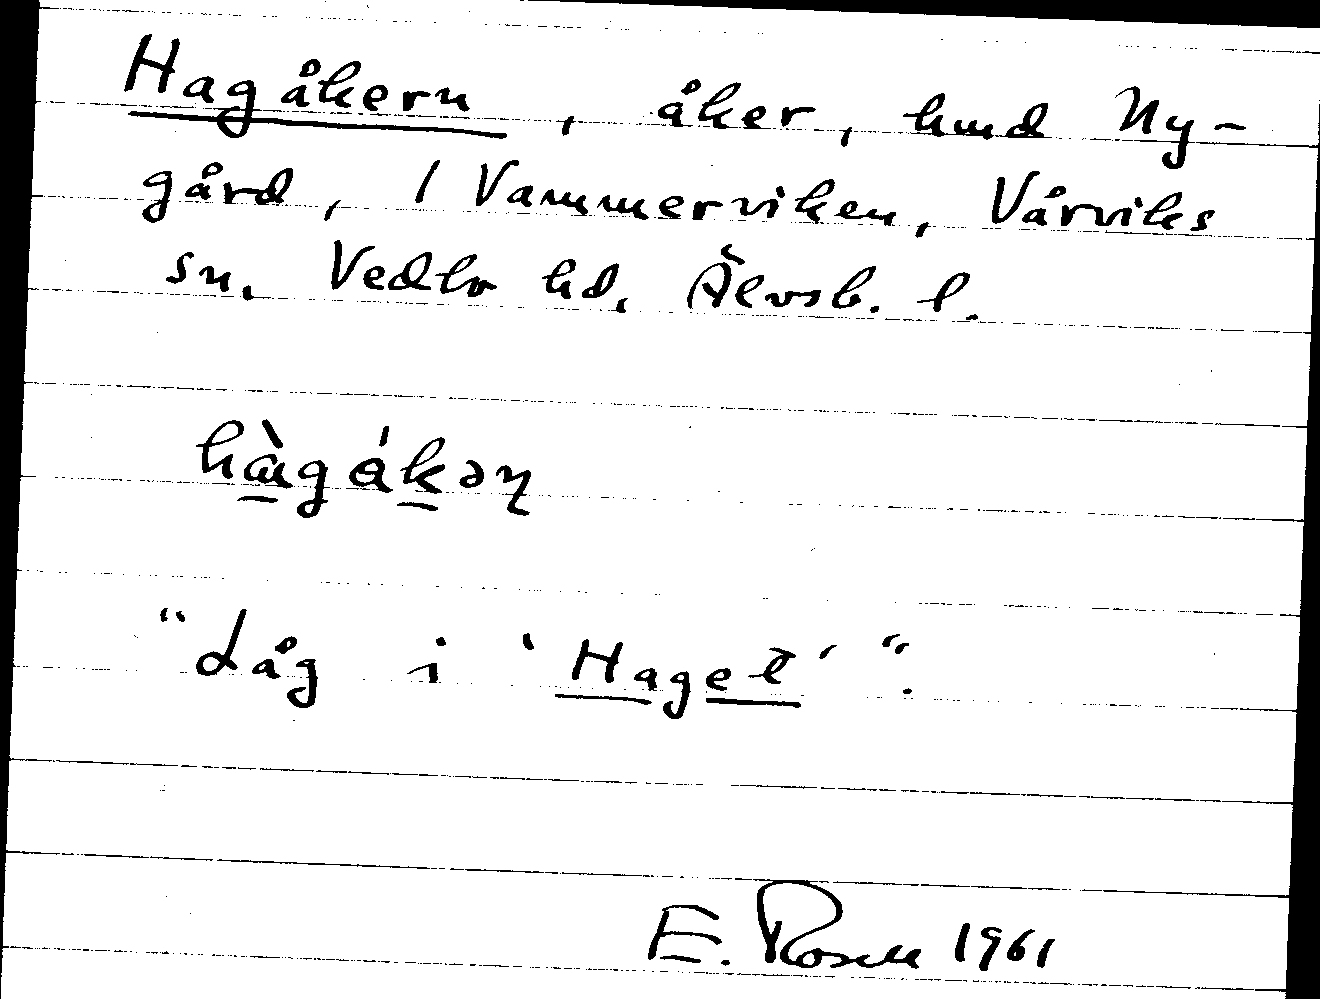 Hagåkern, åker, hmd Ny-
gård, 1 Vammerviken, Vårviks
sn. Vedbo hd. Älvsb. l.
hàgákəɳ
"Låg i 'Haget'".
E. Rosell 1961